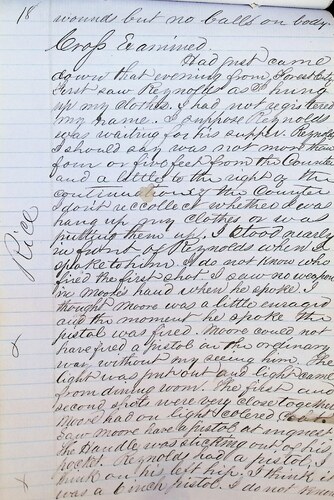 18
wounds but no balls on body
Cross Examined
Had just came
down that evening from Forest City
First saw Reynolds as I hung
up my clothes. I had not registered
my name. I suppose Reynolds
was waiting for his supper. Reynolds
I should say was not more than
four or five feet from the Counter
and a little to the right of the
continuance of the Counter
I don't recollect whether I was
hang up my clothes or was
putting them up. I stood nearly
in front of Reynolds when I
spoke to him. I do not know who
fired the first shot I saw no weapon
in Moore hand when he spoke I
thought Moore was a little enraged
and the moment he spoke the
pistol was fired. Moore could not
have fired a pistol in the ordinary
way without my seeing him. The
light was put out and light came
from dining room. The first and
second shots were very close together
Moore had on light colored
Saw Moore have a pistol at
the handle was sticking out of his
pocket. Reynolds had a pistol, I
think on his left hip. I think it
was a 6 inch pistol. I do not
Rice
x
x